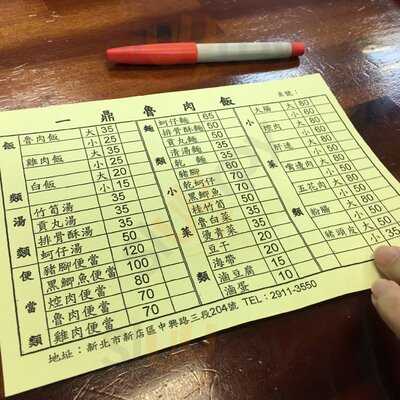 一鼎魯肉飯
桌號：
飯類
魯肉飯 大 35
小 25
雞肉飯 大 35
小 25
白飯 大 20
小 15
湯類
竹筍湯 35
貢丸湯 35
排骨酥湯 50
蚵仔湯
便當類
豬腳便當 120
黑鯝魚便當 100
焢肉便當 80
魯肉便當 70
雞肉便當 70
麵類
蚵仔麵 65
排骨酥麵 50
貢丸麵 50
清湯麵 35
乾麵
小菜類
豬腳 60
乾蚵仔 70
黑鯝魚 70
桂竹筍 50
魯白菜 35
燙青菜 35
豆干 20
海帶 20
油豆腐 15
滷蛋 10
小菜類
大腸 大 80
小 60
焢肉 大 80
小 60
肝連 大 80
小 50
嘴邊肉 大 80
小 50
五花肉 大 80
小 50
粉腸 大 80
小 50
豬頭皮 大 50
小 35
地址：新北市新店區中興路三段204號 TEL：2911-3550